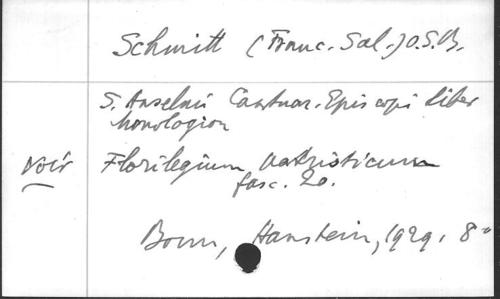 Schmitt (Franc. Sal.) O.S.B.
S. Anselmi Cantuar. Episcopi liber
Monologion
voir Florilegium patristicum
fasc. 20.
Bonn, Hanstein, 1929, 8°